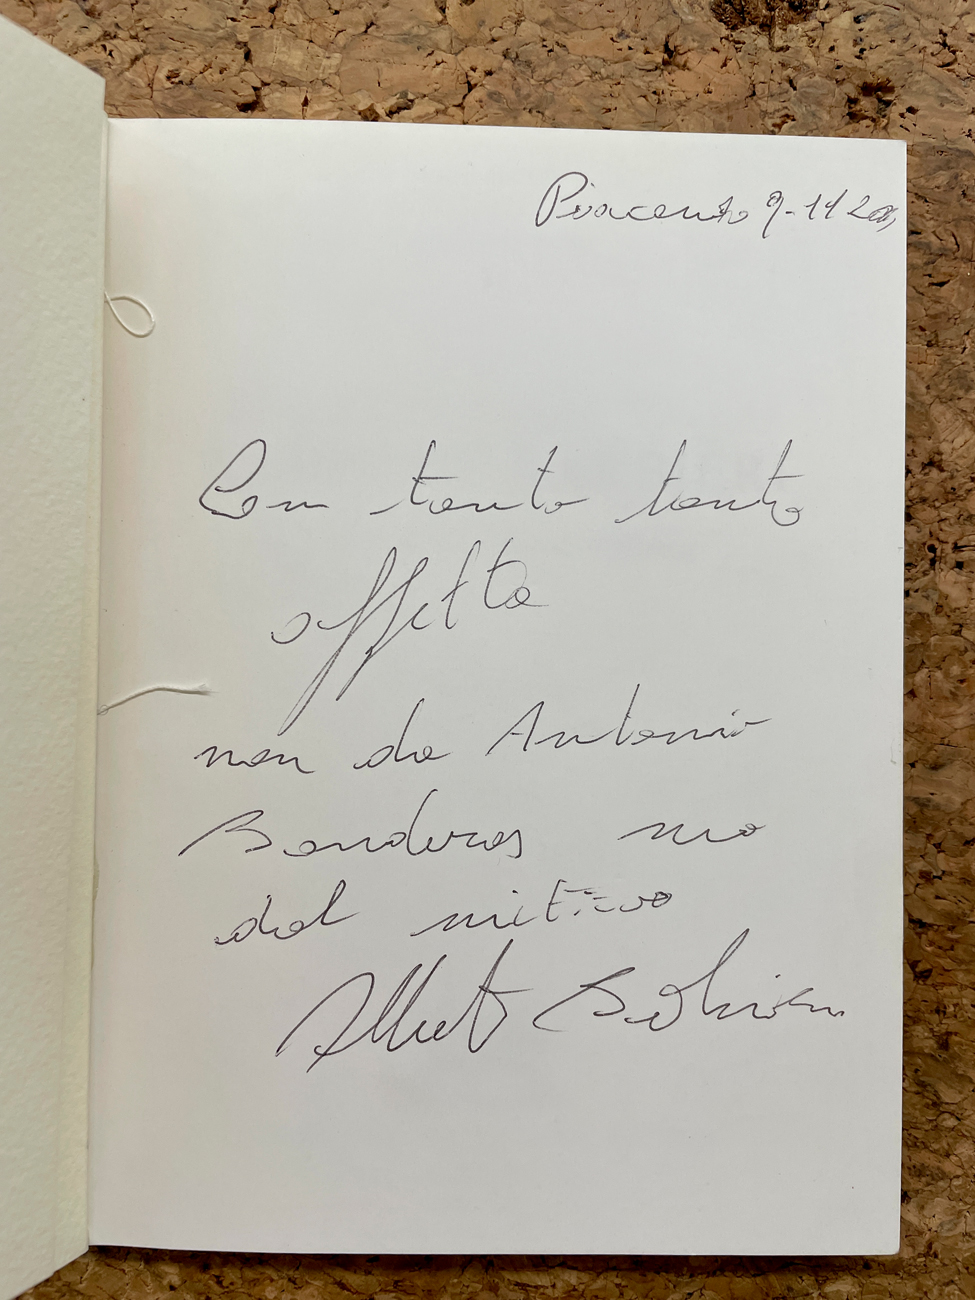 Piacenza 9-11 20
Con tanto tanto
affetto
non da Antonio
Banderas ma
dal mitico
Albert